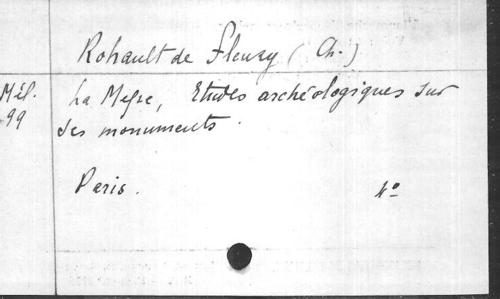 Rohault de Fleury (Ch.)
Mél. 99
La Messe, Etudes archéologiques sur
ses monuments.
Paris. 4º